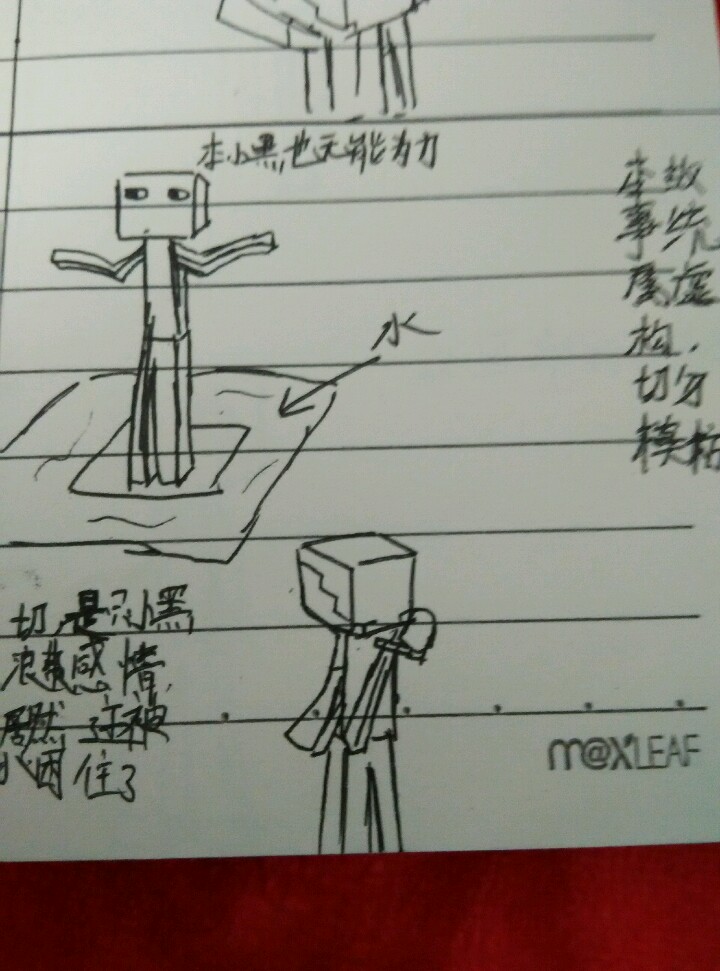 本小黑也无能为力
本故
事纯
属虚
构，
切勿
模粘
水
切，是只小黑，
浪费感情，
居然还被
水困住了
m@x'LEAF